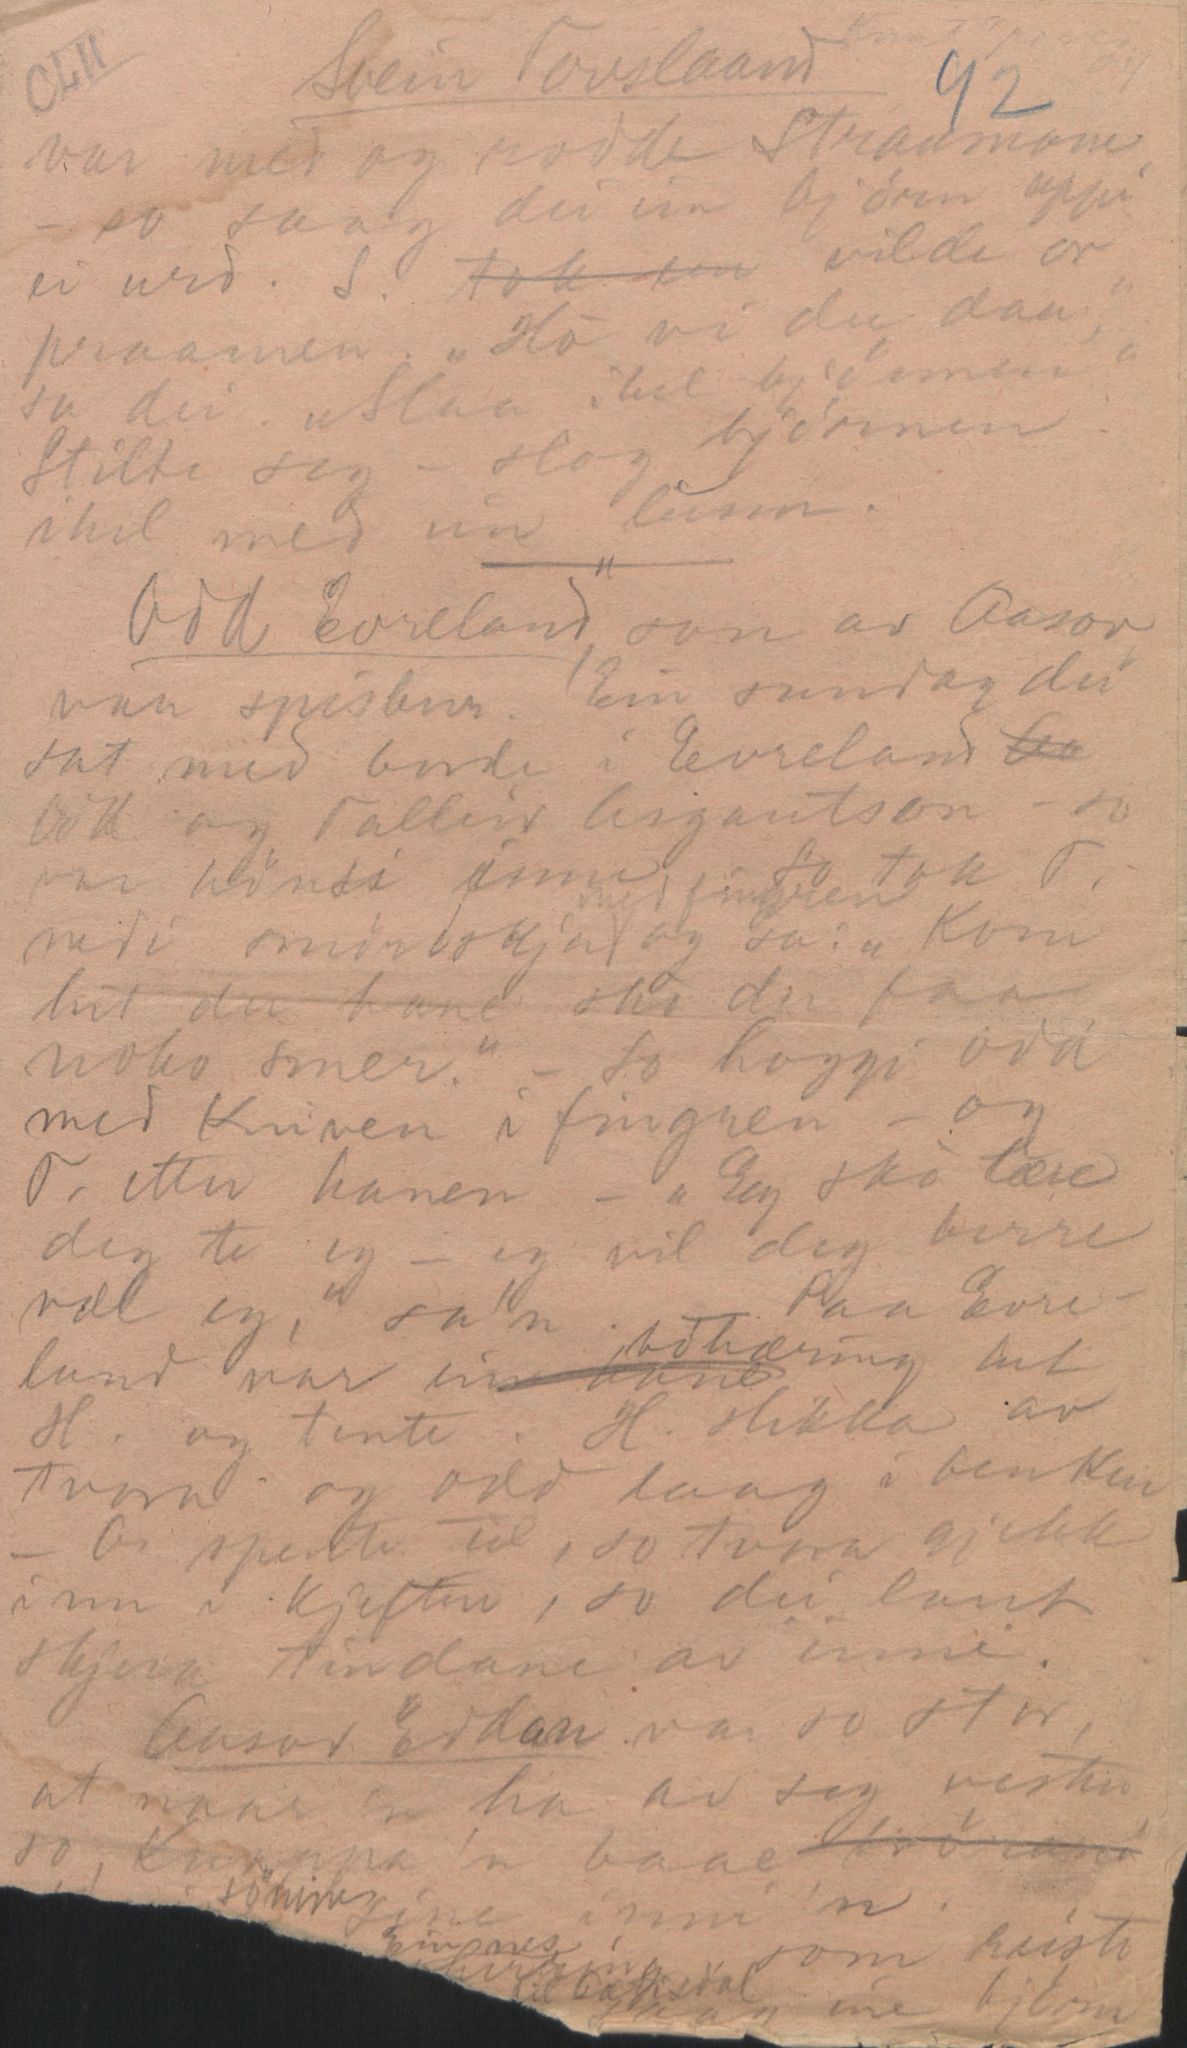 CLII
Svein Tovslaand 92
var med og rodde Straumane
- so saag dei ein bjørn uppi
ei urd. S. tok ein vilde or
praamen. "Hò vi du daa,"
sa dei. "Slaa ihel bjørnen"
Stilte seg - slog bjørnen
ihel med ein
Odd Evreland, son av Aasov,
var spisbur. Ein sundag dei
sat med borde i Evreland
Odd og Talleiv Asgautson - so
var hønsi inne. So tok T.
med fingren
nedi smørbskja og sa: "Kom
hit du hane skò du faa
noko smer." - So hoggi Odd
med kniven i fingren - og
T. etter hanen - "Eg skò lære
deg te eg - eg vil deg berre
væl eg," sa'n. Paa Evre-
land var ein
H. og tente. H. slikka av
tvora og Odd laag i benken
- O. spente til, so tvora gjekk
inn i kjeften, so dei laut
skjera tindane av inni.
Aasov Eddan var so stor,
at naar 'n ha av seg vesten,
so knappa 'n baae
sønine
sine inni 'n.
som reiste
til
saag eine bjørn